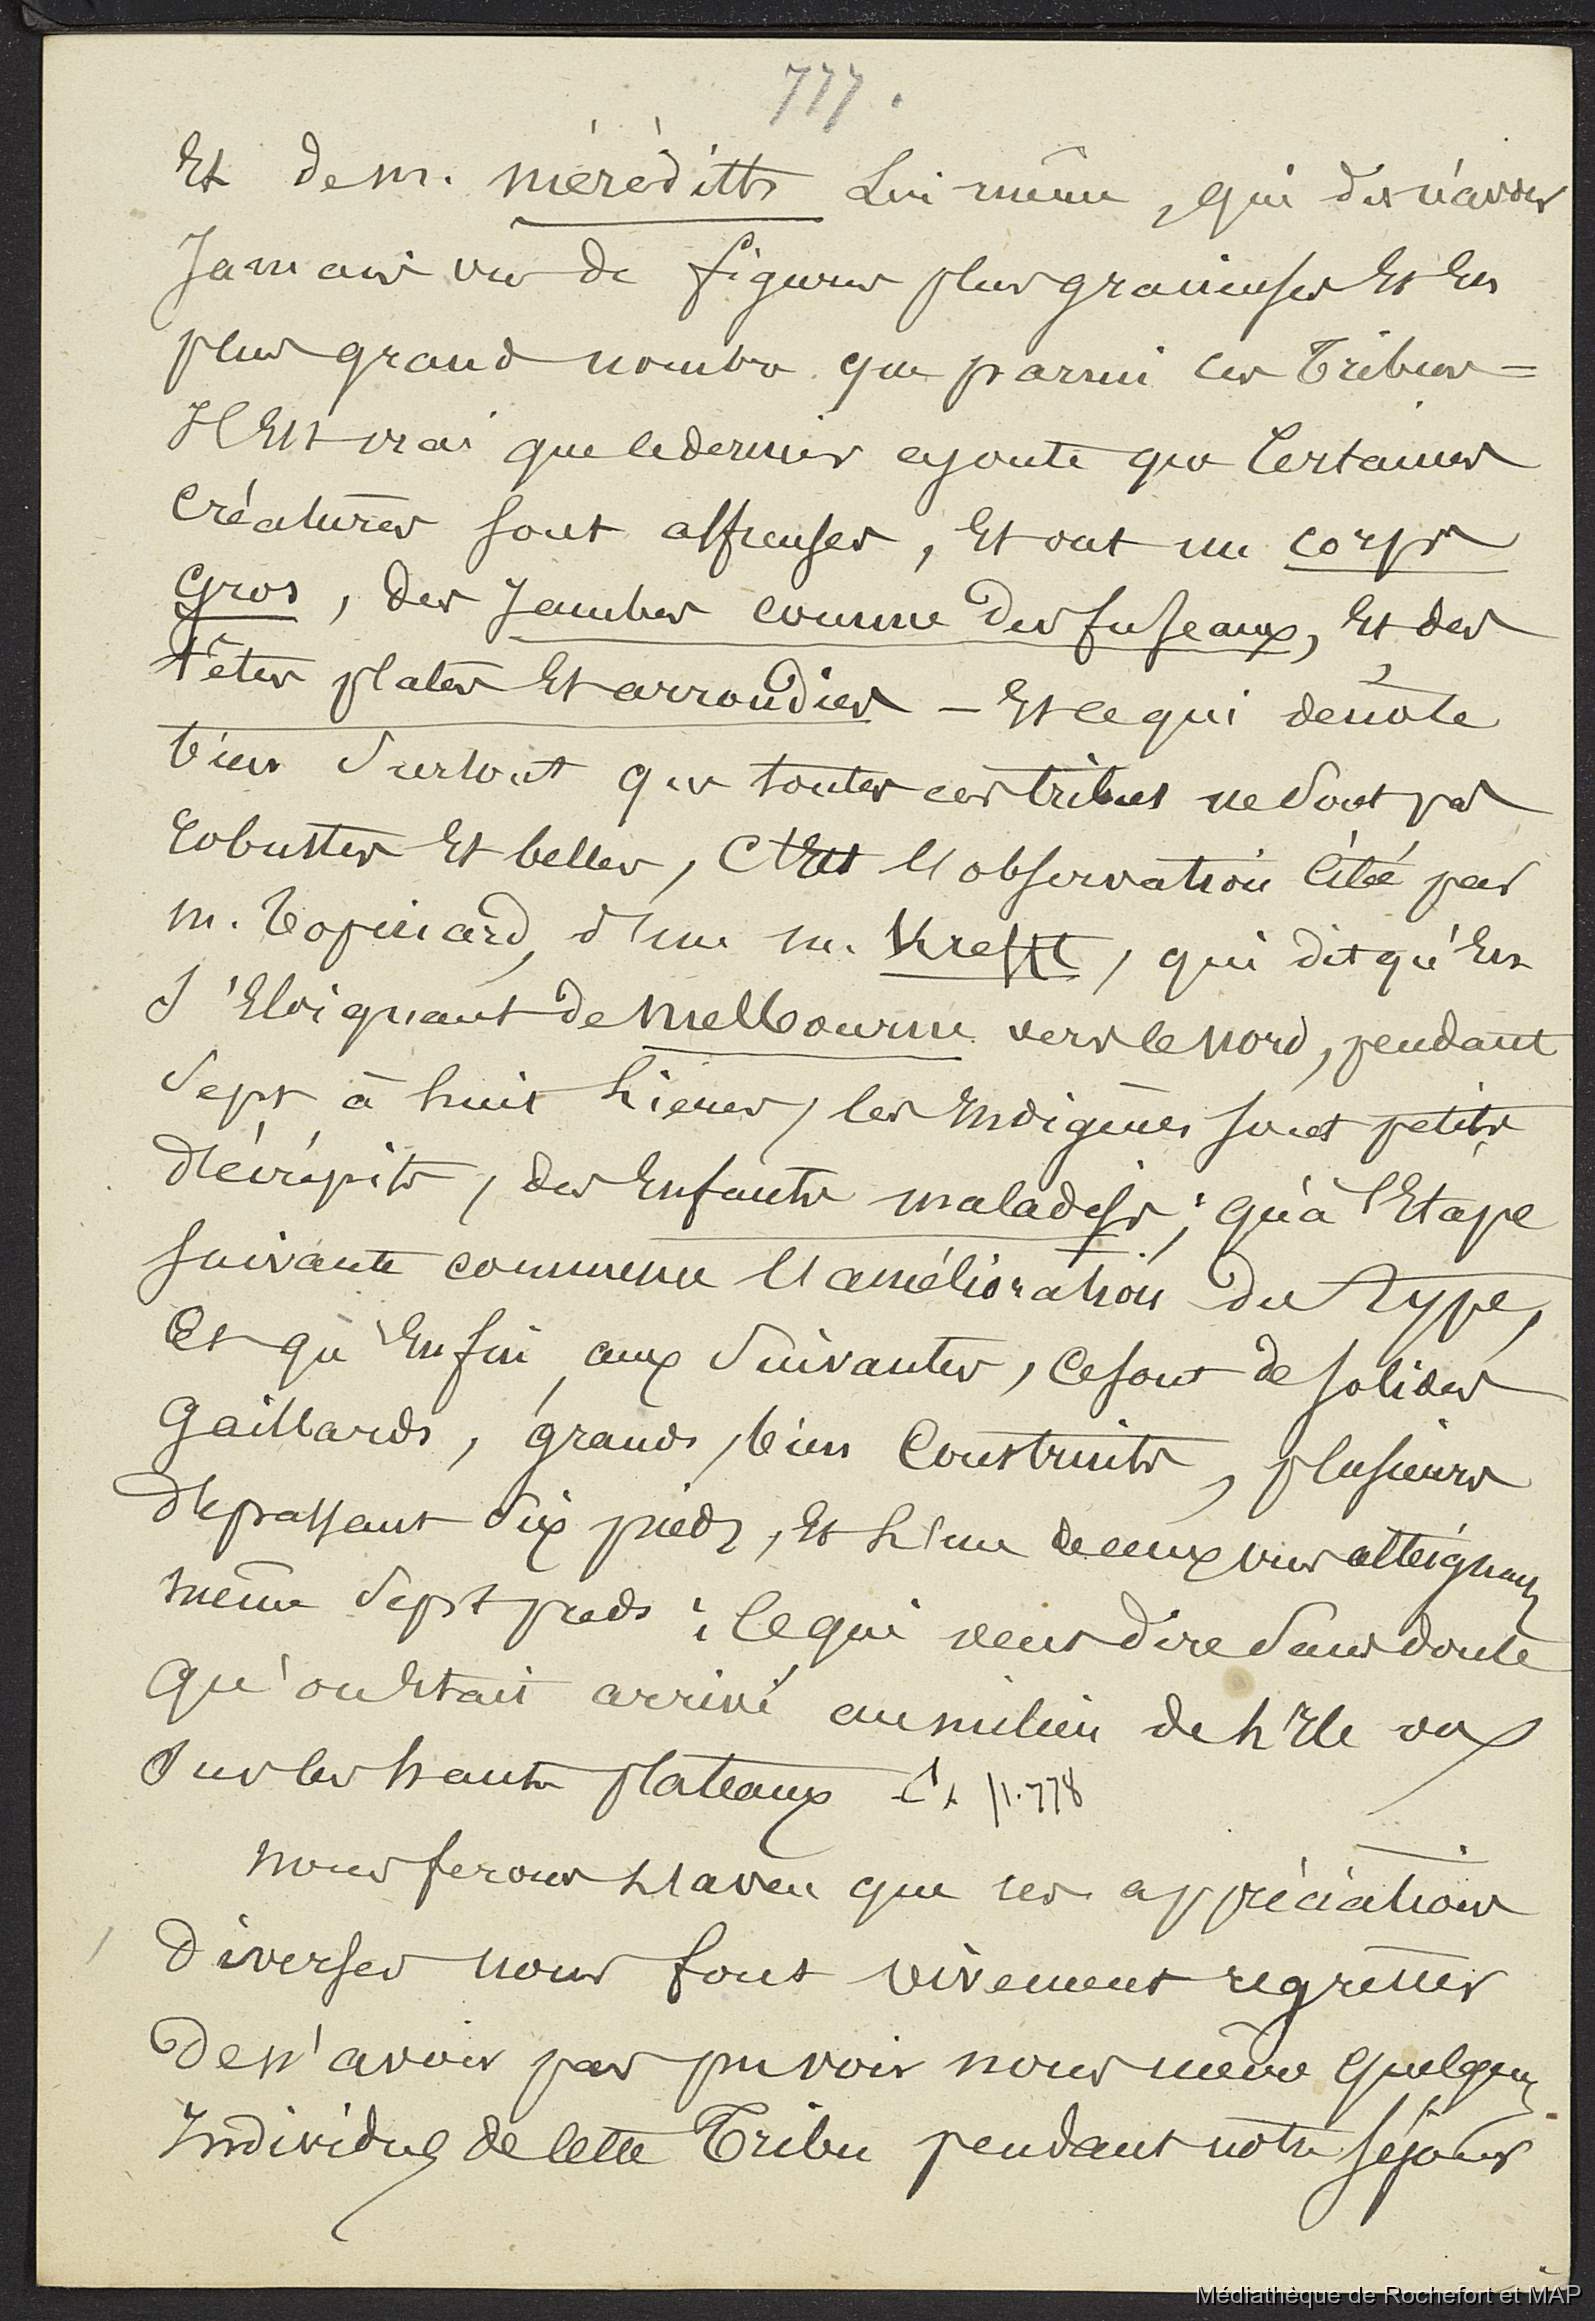 777.
Et de m. mérédith Lui même, qui dit n'avoir
Jamais vu de figures plus gracieuses Et En
plus grand nombre que parmi ces Tribus =
Il Est vrai que le dernier ajoute que Certaines
Créatures sont affreuses, Et ont un corps
gros, des Jambes comme des fuseaux, Et des
têtes plates Et arrondies — Et ce qui dénote
bien surtout que toutes ces tribus ne sont pas
robustes Et belles, C'Est l'observation Citée par
m. Topinard, d'un m. Krefft, qui dit qu'En
s'Eloignant de Melbourne vers le nord, pendant
sept à huit Lieues, les Indigènes sont petits
décrépits, des Enfants maladifs; qu'à l'Etape
suivante commence l'amélioration du type,
Et qu'Enfin, aux suivantes, Ce sont de solides
Gaillards, grands, bien Construits, plusieurs
dépassant six pieds, Et l'un de ceux vus atteignait
même sept pieds; Ce qui veut dire sans doute
qu'on Etait arrivé au milieu de l'Ile ou
sur les hauts plateaux p. 778
Nous ferons l'aveu que ces appréciations
diverses nous font vivement regretter
De n'avoir pas pu voir nous même quelques
Individus de Cette Tribu pendant notre séjour
Médiathèque de Rochefort et MAP